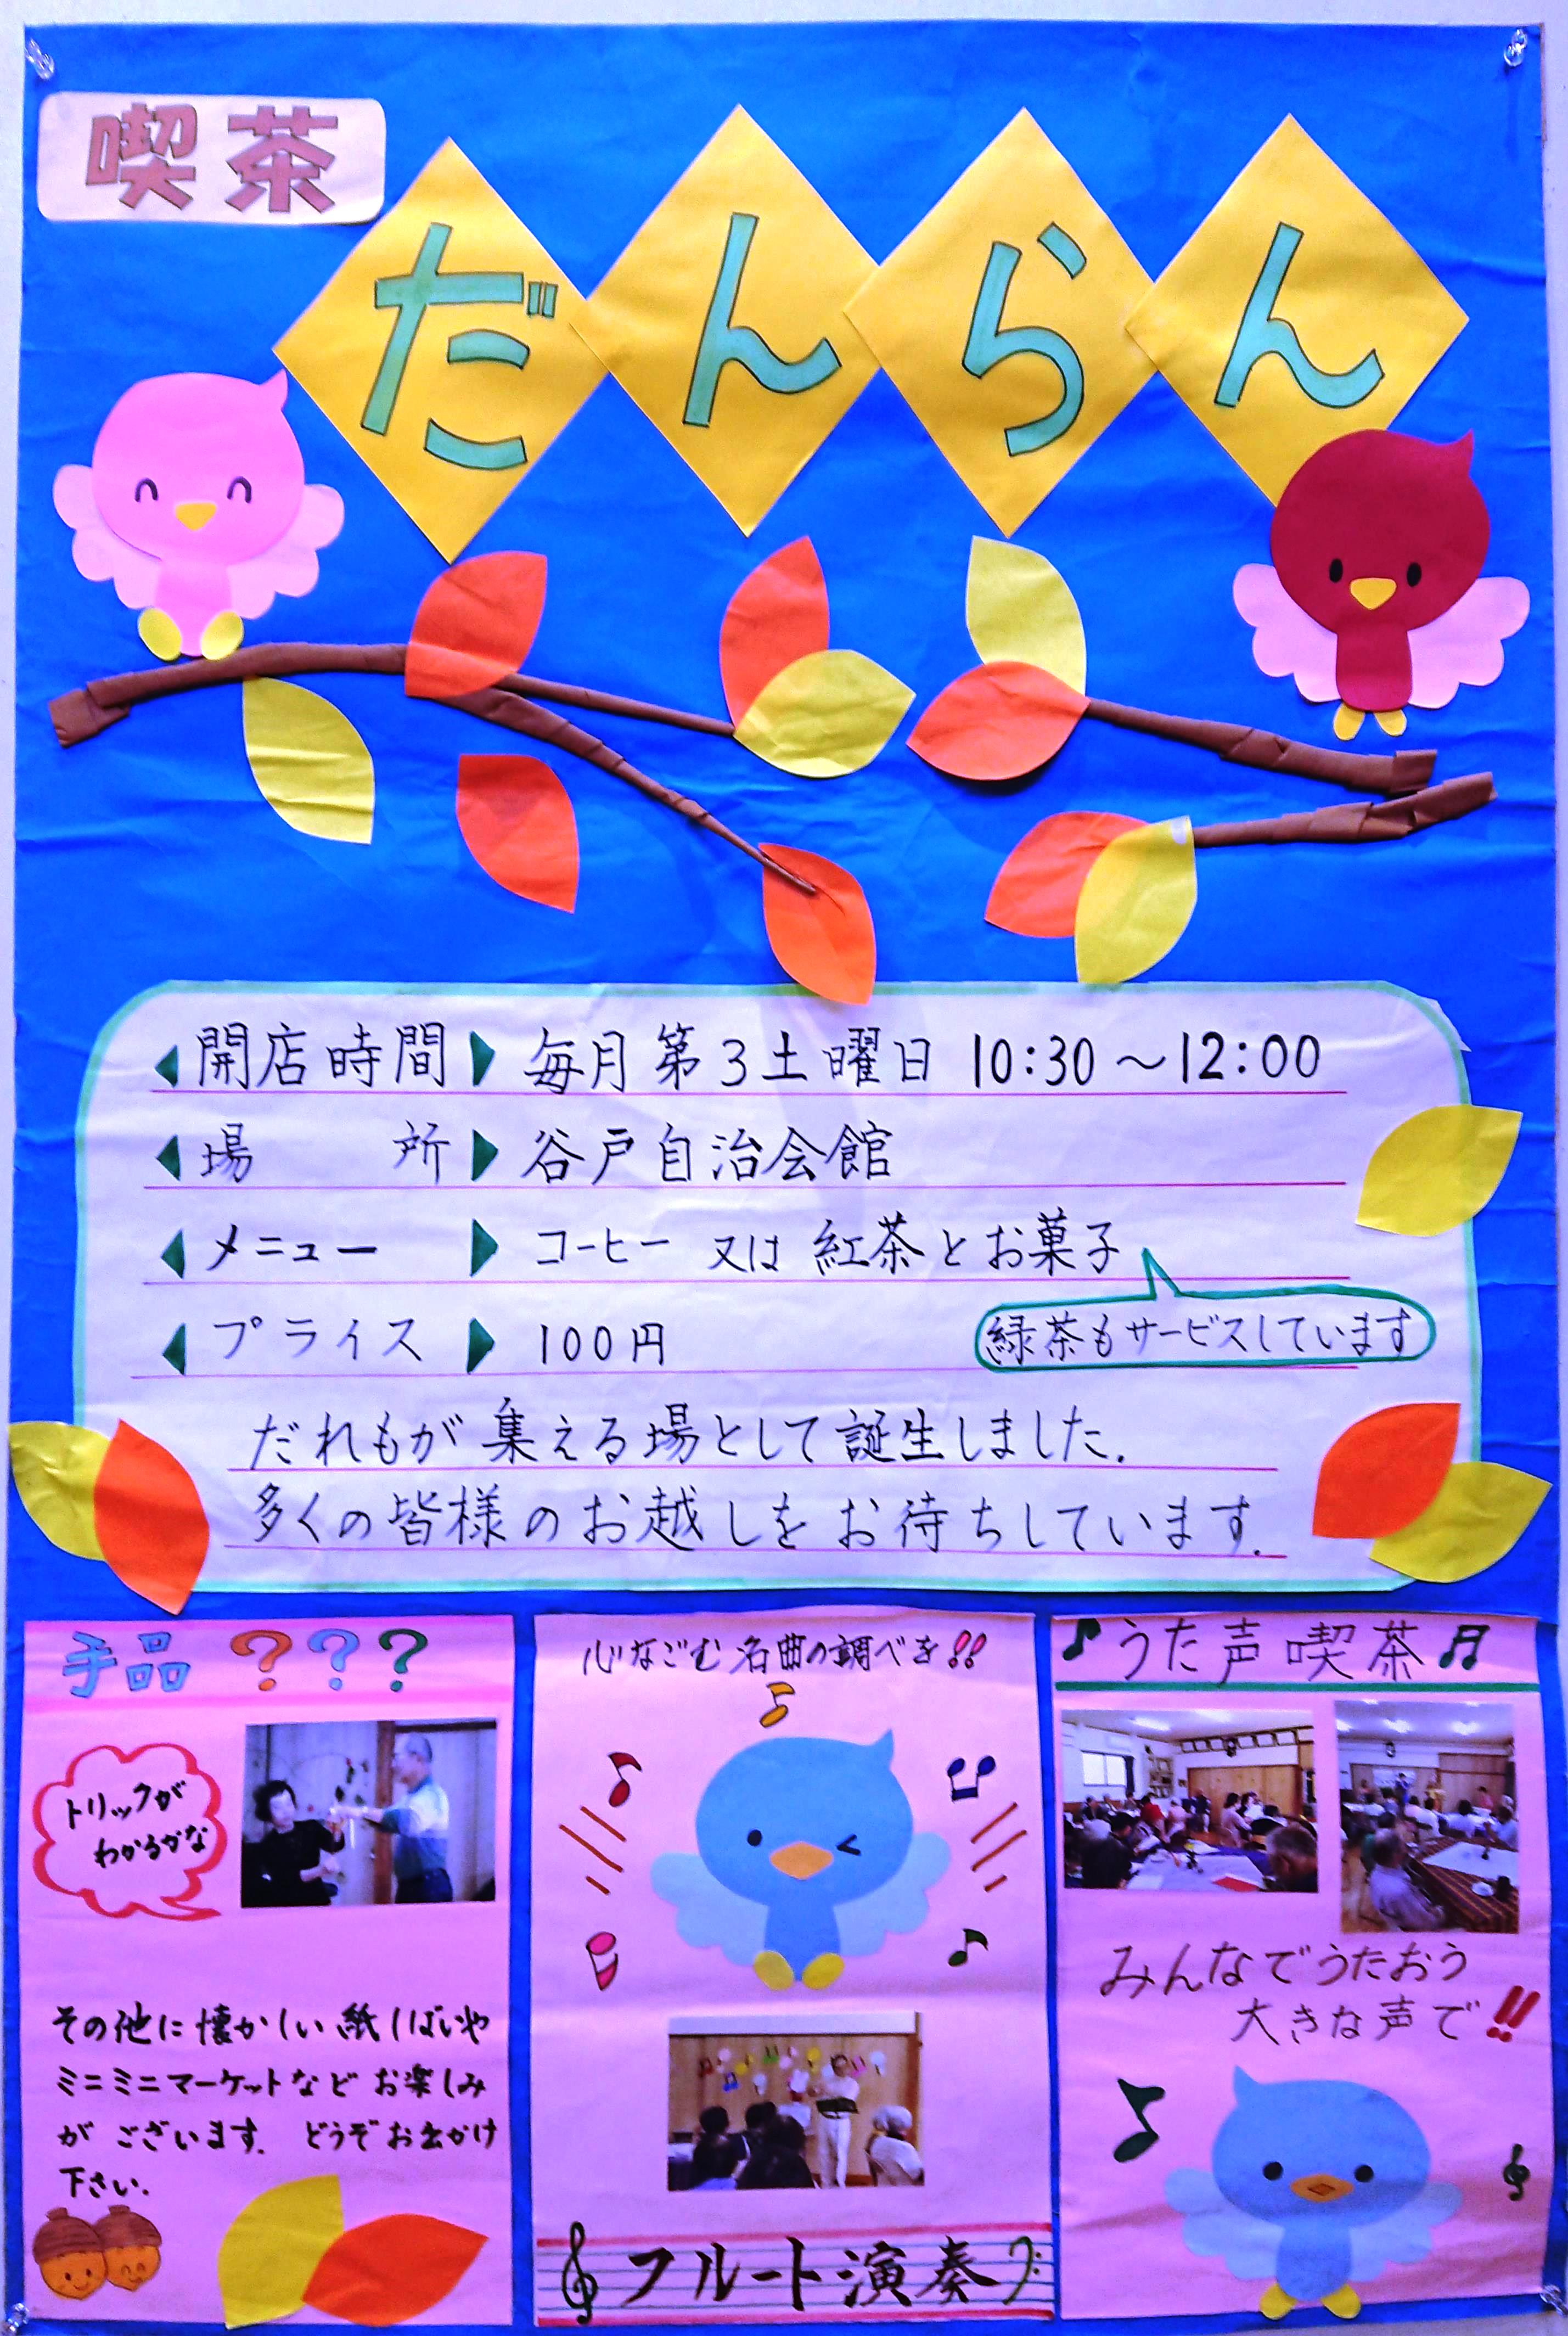 喫茶
だんらん
開店時間 毎月第3土曜日 10:30～12:00
場所 谷戸自治会館
メニュー コーヒー 又は 紅茶とお菓子
緑茶もサービスしています
プライス 100円
だれもが集える場として誕生しました.
多くの皆様のお越しをお待ちしています.
手品???
トリックが
わかるかな
その他に懐かしい紙しばいや
ミニミニマーケットなどお楽しみ
がございます. どうぞお出かけ
下さい.
心なごむ名曲の調べを!!
フルート演奏
うた声喫茶
みんなでうたおう
大きな声で!!